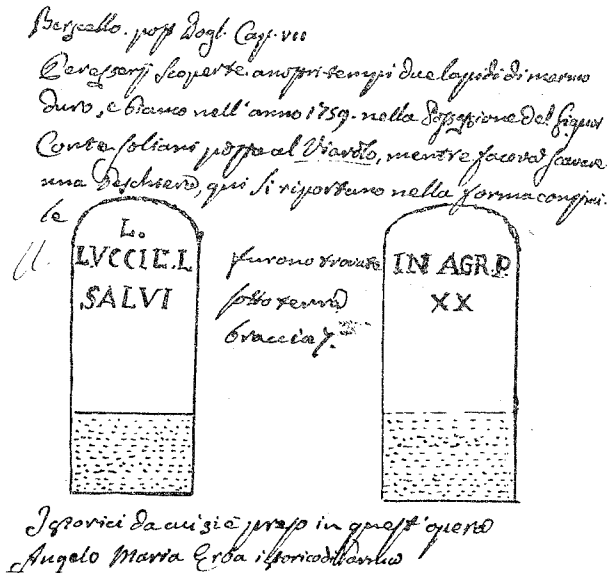 Berscello. post Dogl. Cap. VII
scoperte a nostri tempi due lapidi di marmo
duro, e bianco nell'anno 1759. nella possessione del Signor
Conte Soliani posta al Viarolo, mentre faceva scavare
una Peschiera, qui si riportano nella forma
le
L.
LVCCIL.L
SALVI
furono trovate
sotto terra
braccia 7.
IN AGR.P
XX
Istorici da cui si è preso in quest'opera
Angelo Maria Erba istorico di Parma